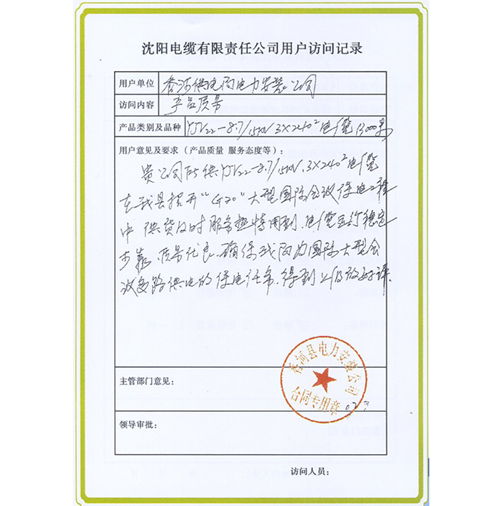 沈阳电缆有限责任公司用户访问记录
用户单位 香河供电局电力安装公司
访问内容 产品质量
产品类别及品种 YJV22-8.7/15KV 3×240² 电缆 13000米
用户意见及要求（产品质量 服务态度等）：
贵公司所供YJV22-8.7/15KV.3×240²电缆
在我县召开“G20”大型国际会议保电工程
中供货及时服务热情周到.电缆运行稳定
可靠.质量优良.确保我局为国际大型会
议免路供电的保电任务.得到上级政好评.
主管部门意见：
香河县电力安装公司
合同专用章
领导审批：
访问人员：